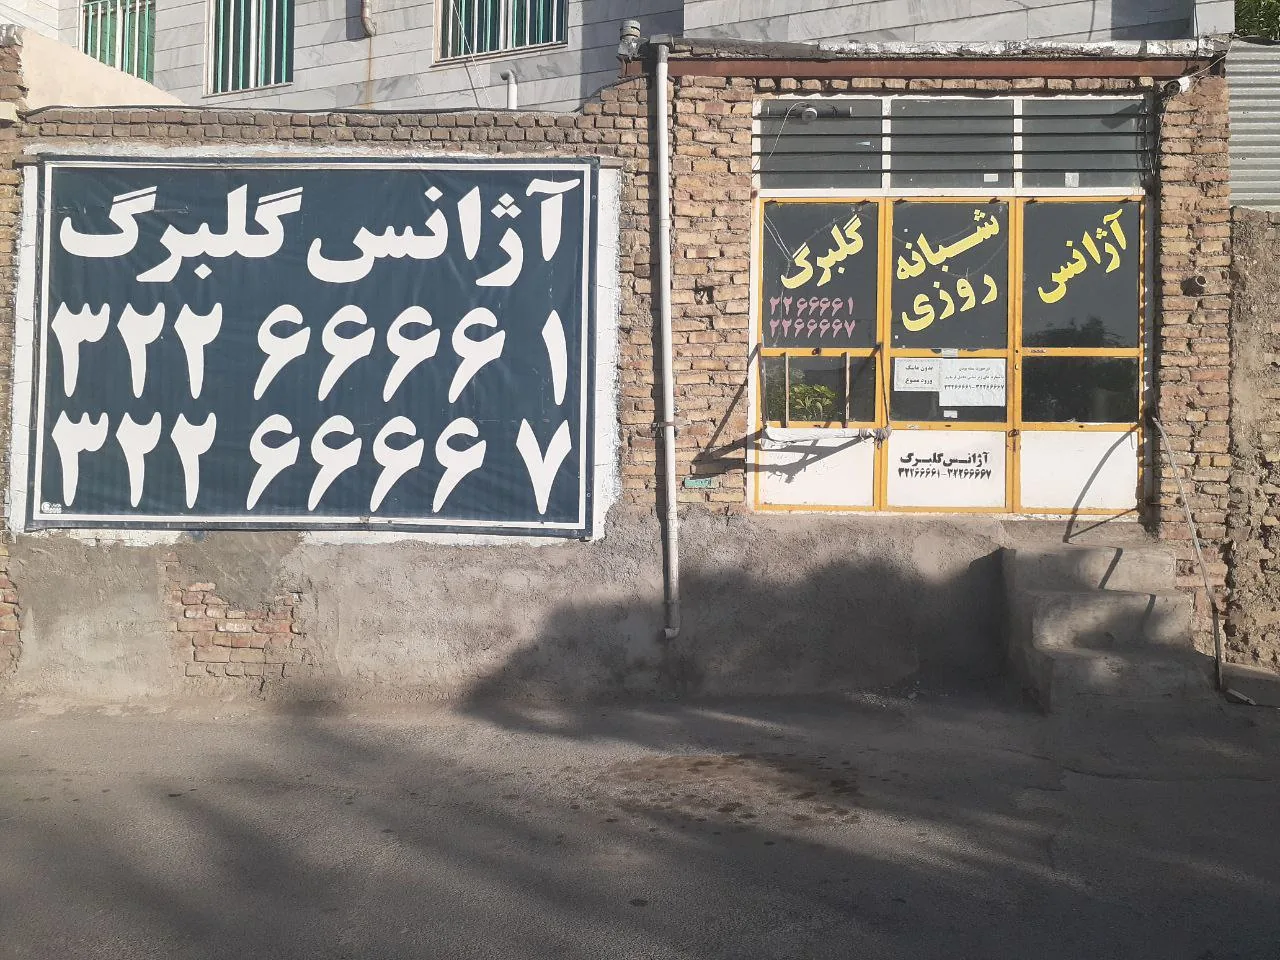 آژانس گلبرگ
۳۲۲ ۶۶۶۶ ۱
۳۲۲ ۶۶۶۶ ۷
آژانس
شبانه
روزی
گلبرگ
۲۲۶۶۶۶۱
۲۲۶۶۶۶۷
بدون ماسک
ورود ممنوع
۳۲۲۶۶۶۶۱-۳۲۲۶۶۶۶۷
آژانس گلبرگ
۳۲۲۶۶۶۶۱-۳۲۲۶۶۶۶۷